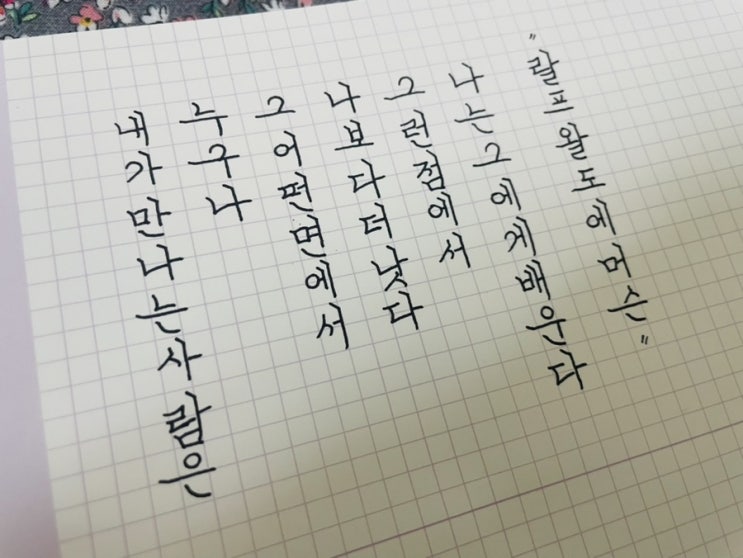 내가만나는사람은
누구나
그어떤면에서
나보다더낫다
그런점에서
나는그에게배운다
"랄프왈도에머슨"